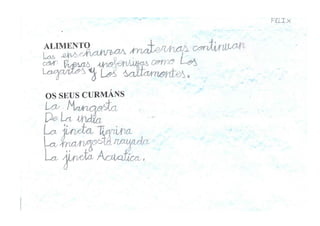 FELIX
ALIMENTO
Las enseñanzas maternas continuan
con Presas inofensivas como Los
Lagartos y Los saltamontes.
OS SEUS CURMÁNS
La Mangosta
De La india
La jineta Tigrina
La mangosta rayada
La jineta Acuatica.